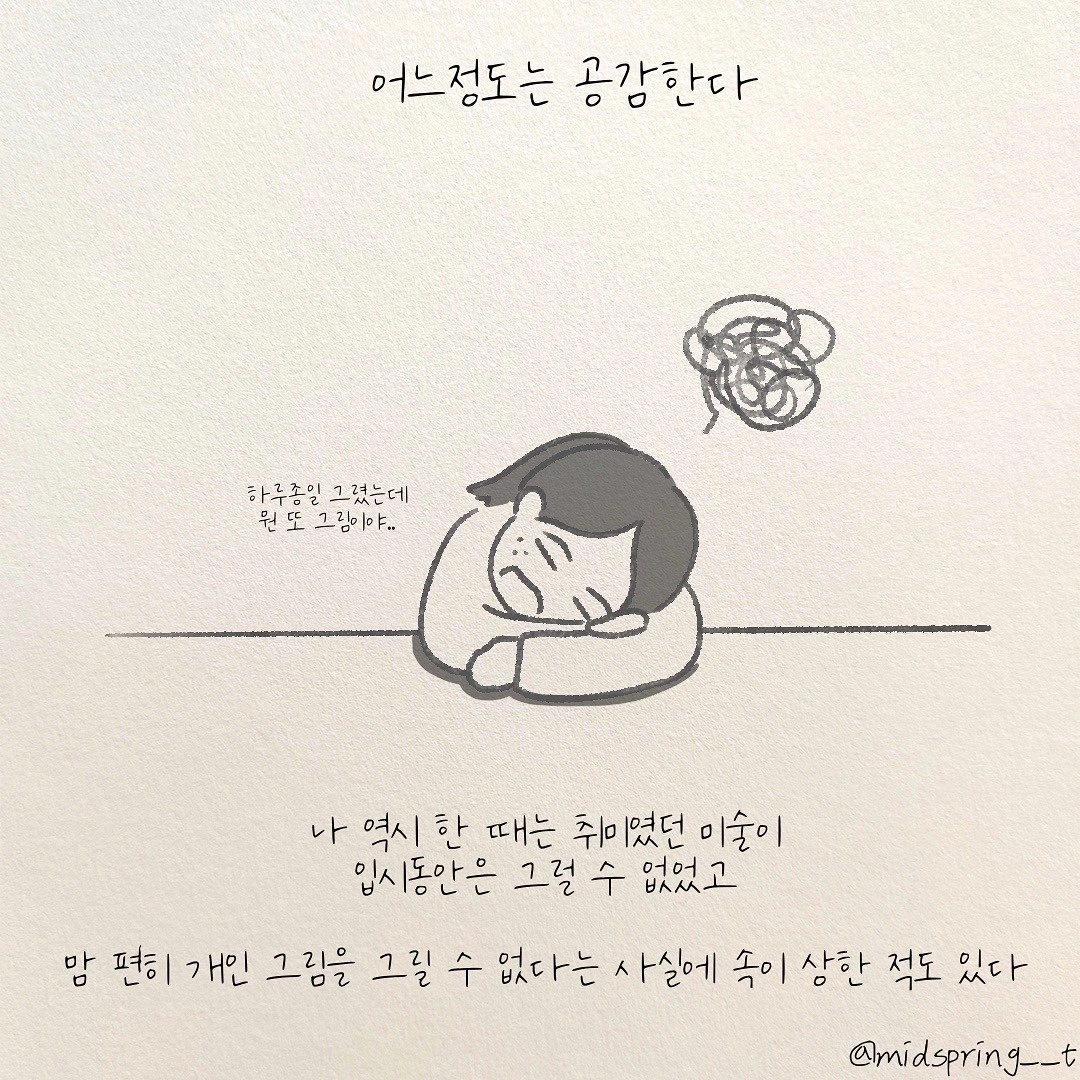 어느정도는 공감한다
하루종일 그렸는데
뭔 또 그림이야..
나 역시 한 때는 취미였던 미술이
입시동안은 그럴 수 없었고
맘 편히 개인 그림을 그릴 수 없다는 사실에 속이 상한 적도 있다
@midspring__t